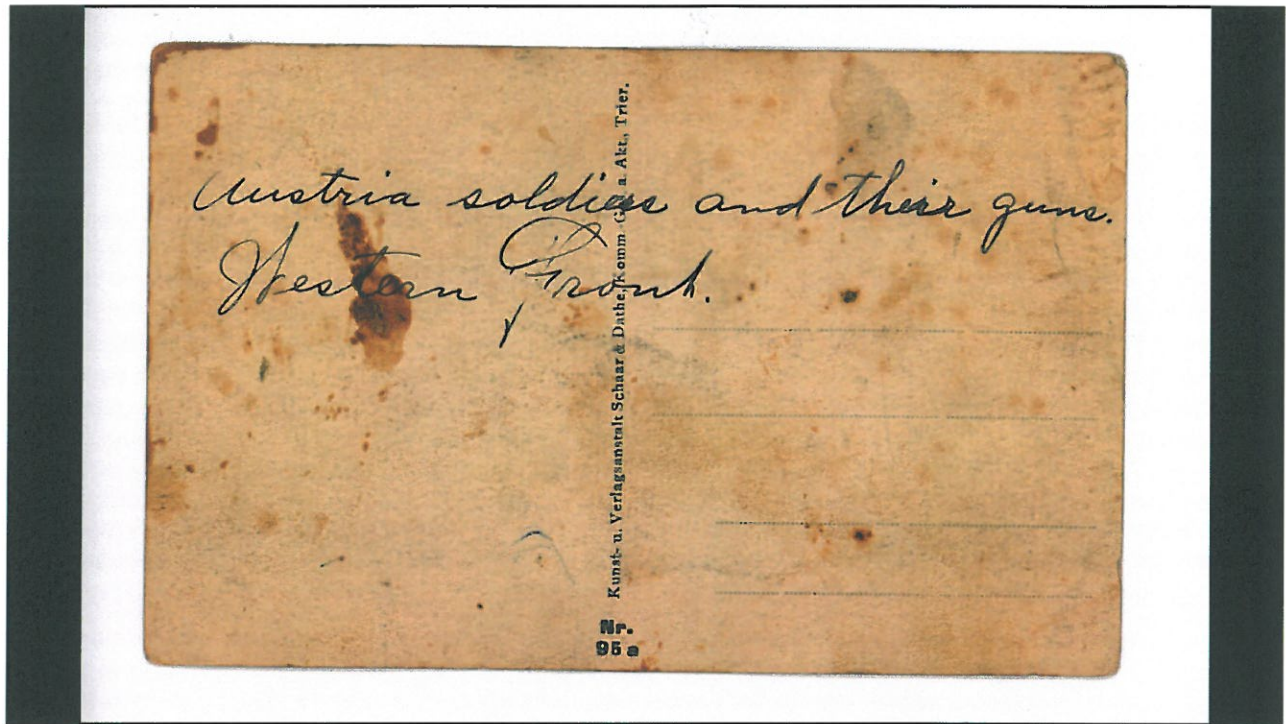 Austria soldiers and their guns.
Western Front.
Kunst- u. Verlagsanstalt Schaar & Dathe, Komm.-Ges. a. Akt., Trier.
Nr.
95 a